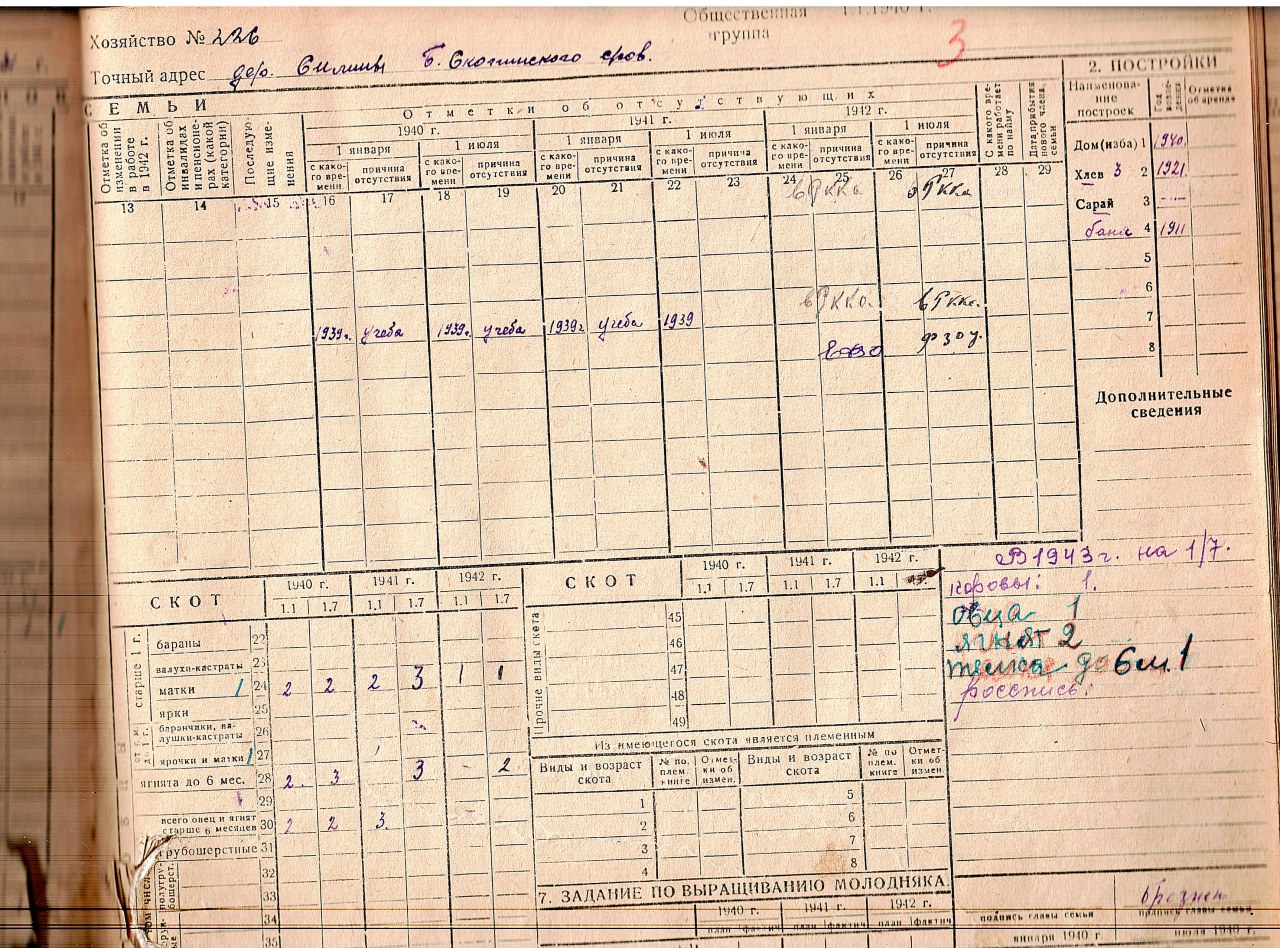 Общественная 1.1.1940 г.
Хозяйство № 226
группа
3
Точный адрес дер. Б. сров.
2. ПОСТРОЙКИ
СЕМЬИ
Отметки об отсутствующих
1940 г. 1941 г. 1942 г.
1 января 1 июля 1 января 1 июля 1 января 1 июля
Отметка об изменении в работе в 1942 г.
Отметка об инвалидах и пенсионерах (какой категории)
Последующие изменения
с какого времени причина отсутствия с какого времени причина отсутствия с какого времени причина отсутствия с какого времени причина отсутствия с какого времени причина отсутствия с какого времени причина отсутствия
С какого времени работает по найму
Дата прибытия нового члена семьи
Наименование построек
Отметка об аренде
13 14 15 16 17 18 19 20 21 22 23 24 25 26 27 28 29
Дом (изба) 1 1940
Хлев 3 2 1921
Сарай 3
баня 4 1911
5
6
7
8
в РККа в РККа
в РККа. в РККа.
1939г. учеба 1939г. учеба 1939г учеба 1939
фзоу.
Дополнительные
сведения
СКОТ
1940 г. 1941 г. 1942 г.
1.1 1.7 1.1 1.7 1.1 1.7
старше 1 г.
бараны 22
валухи-кастраты 23
матки 1 24 2 2 2 3 1 1
ярки 25
баранчики, валушки-кастраты 26
ярочки и матки 1 27
ягнята до 6 мес. 28 2 3 3 - 2
29
всего овец и ягнят старше 6 месяцев 30 2 2 3
грубошерстные 31
32
33
34
35
СКОТ
1940 г. 1941 г. 1942 г.
1.1 1.7 1.1 1.7 1.1
Прочие виды скота
45
46
47
48
49
Из имеющегося скота является племенным
Виды и возраст скота № по плем. книге Отметки об измен. Виды и возраст скота № по плем. книге Отметки об измен.
1 5
2 6
3 7
4 8
7. ЗАДАНИЕ ПО ВЫРАЩИВАНИЮ МОЛОДНЯКА.
1940 г. 1941 г. 1942 г.
план фактич план фактич план фактич
В 1943 г. на 1/7.
коровы: 1.
овца 1
ягнят 2
телка до 6 м. 1
росспись:
подпись главы семьи подпись главы семьи
января 1940 г. июля 1940 г.